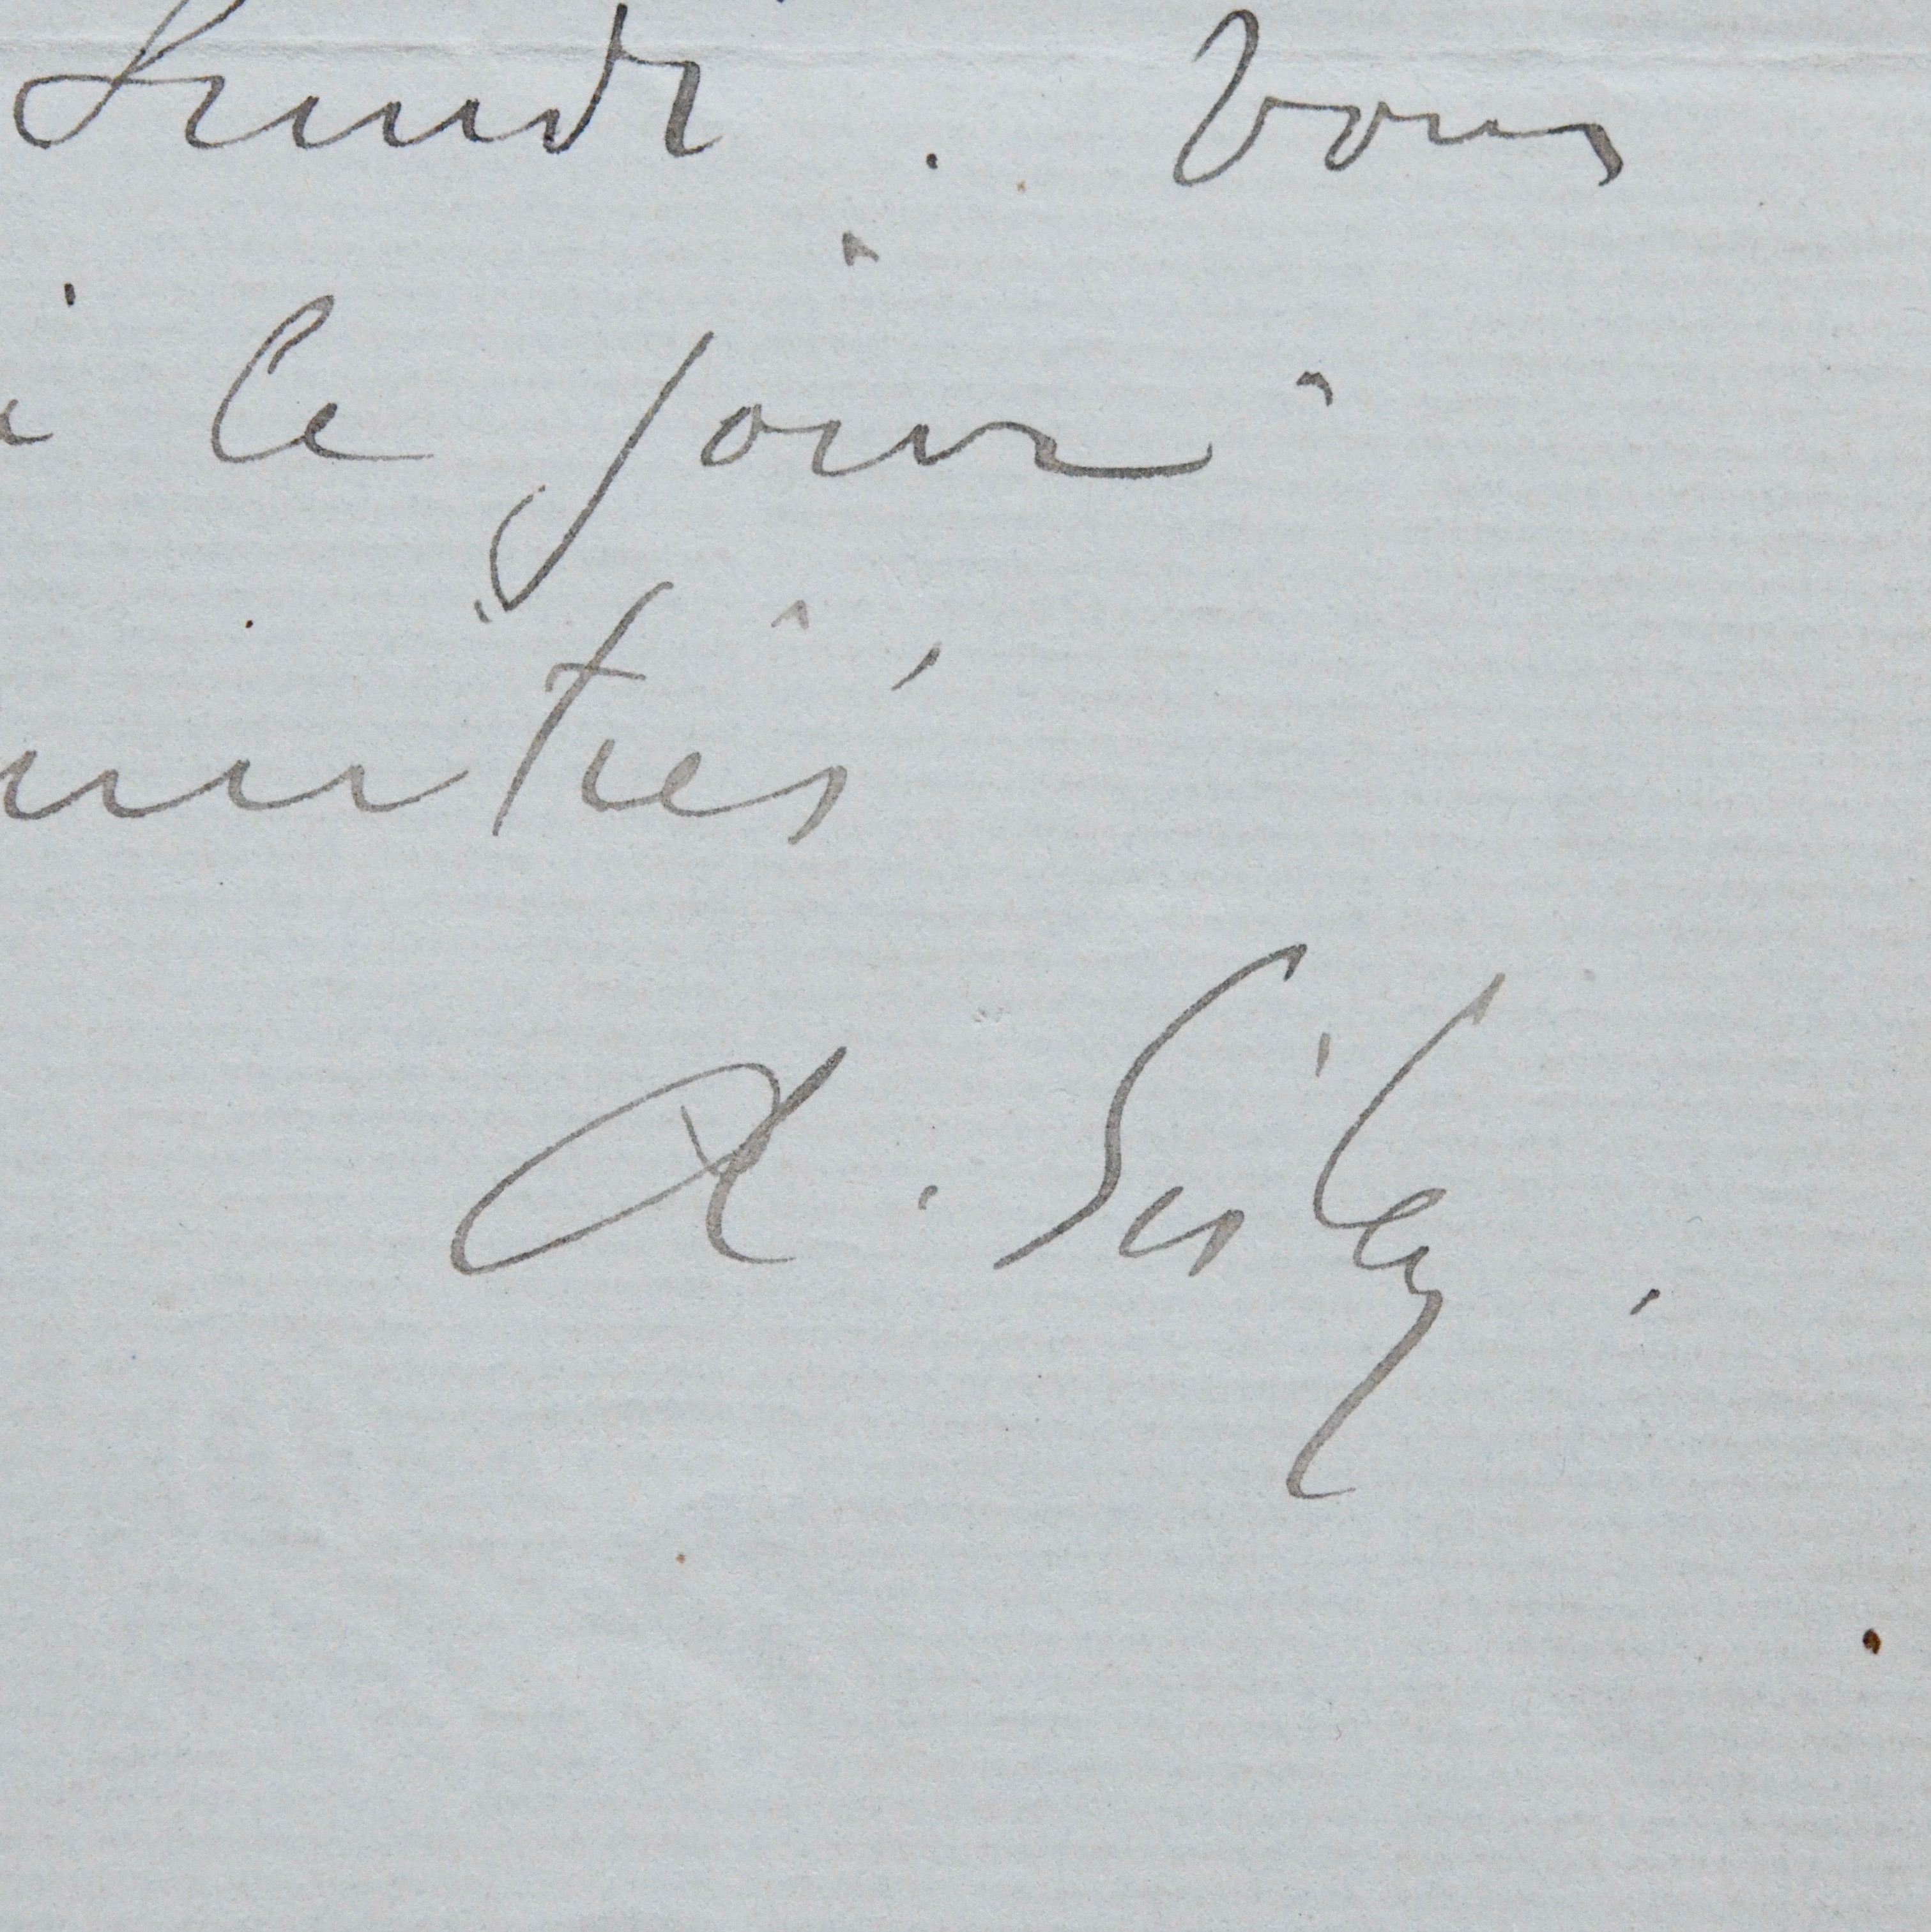 Lundi. Vous
i le jour
amitiés
A. Sisley.